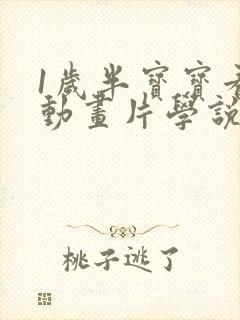 1歲半寶寶看
動畫片學說
桃子逃了